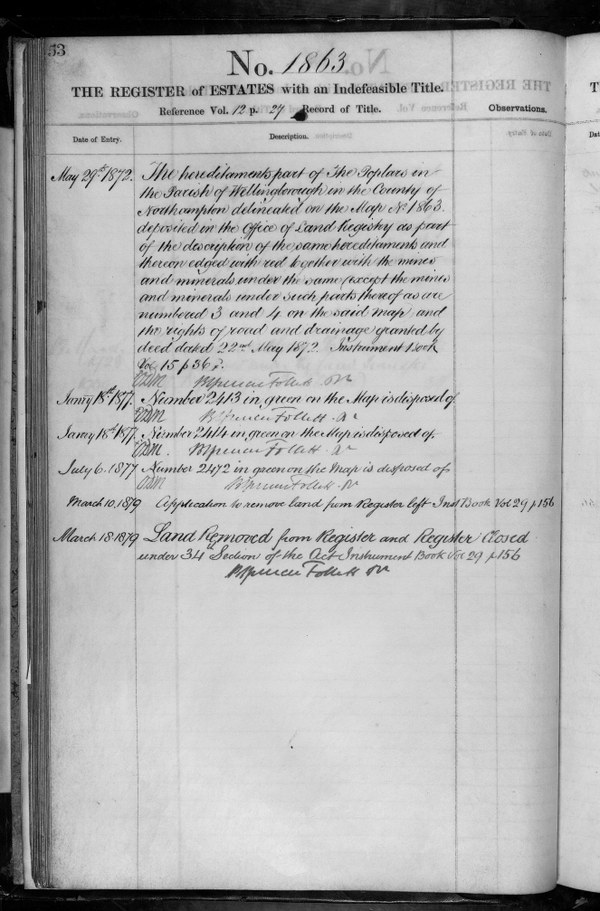 53
No. 1863
THE REGISTER of ESTATES with an Indefeasible Title.
Reference Vol. 12 p. 27 Record of Title.
Observations.
Date of Entry.
Description.
May 29th 1872.
The hereditaments part of The Poplars in
the Parish of Wellingborough in the County of
Northampton delineated on the Map No. 1863
deposited in the Office of Land Registry as part
of the description of the same hereditaments and
thereon edged with red together with the mines
and minerals under the same except the mines
and minerals under such parts thereof as are
numbered 3 and 4 on the said map and
the rights of road and drainage granted by
deed dated 22nd May 1872. Instrument Book
Vol. 15 p 36
Brent Spencer Follett
Janry 18th 1877. Number 2413 in green on the Map is disposed of
Spencer Follett
Janry 18th 1877. Number 2414 in green on the Map is disposed of
Spencer Follett
July 6. 1877 Number 2472 in green on the Map is disposed of
Spencer Follett
March 10. 1879 Application to remove land from Register left Inst Book Vol 29 p 156
March 18 1879 Land Removed from Register and Register Closed
under 34 Section of the Act Instrument Book Vol 29 p 156
Spencer Follett